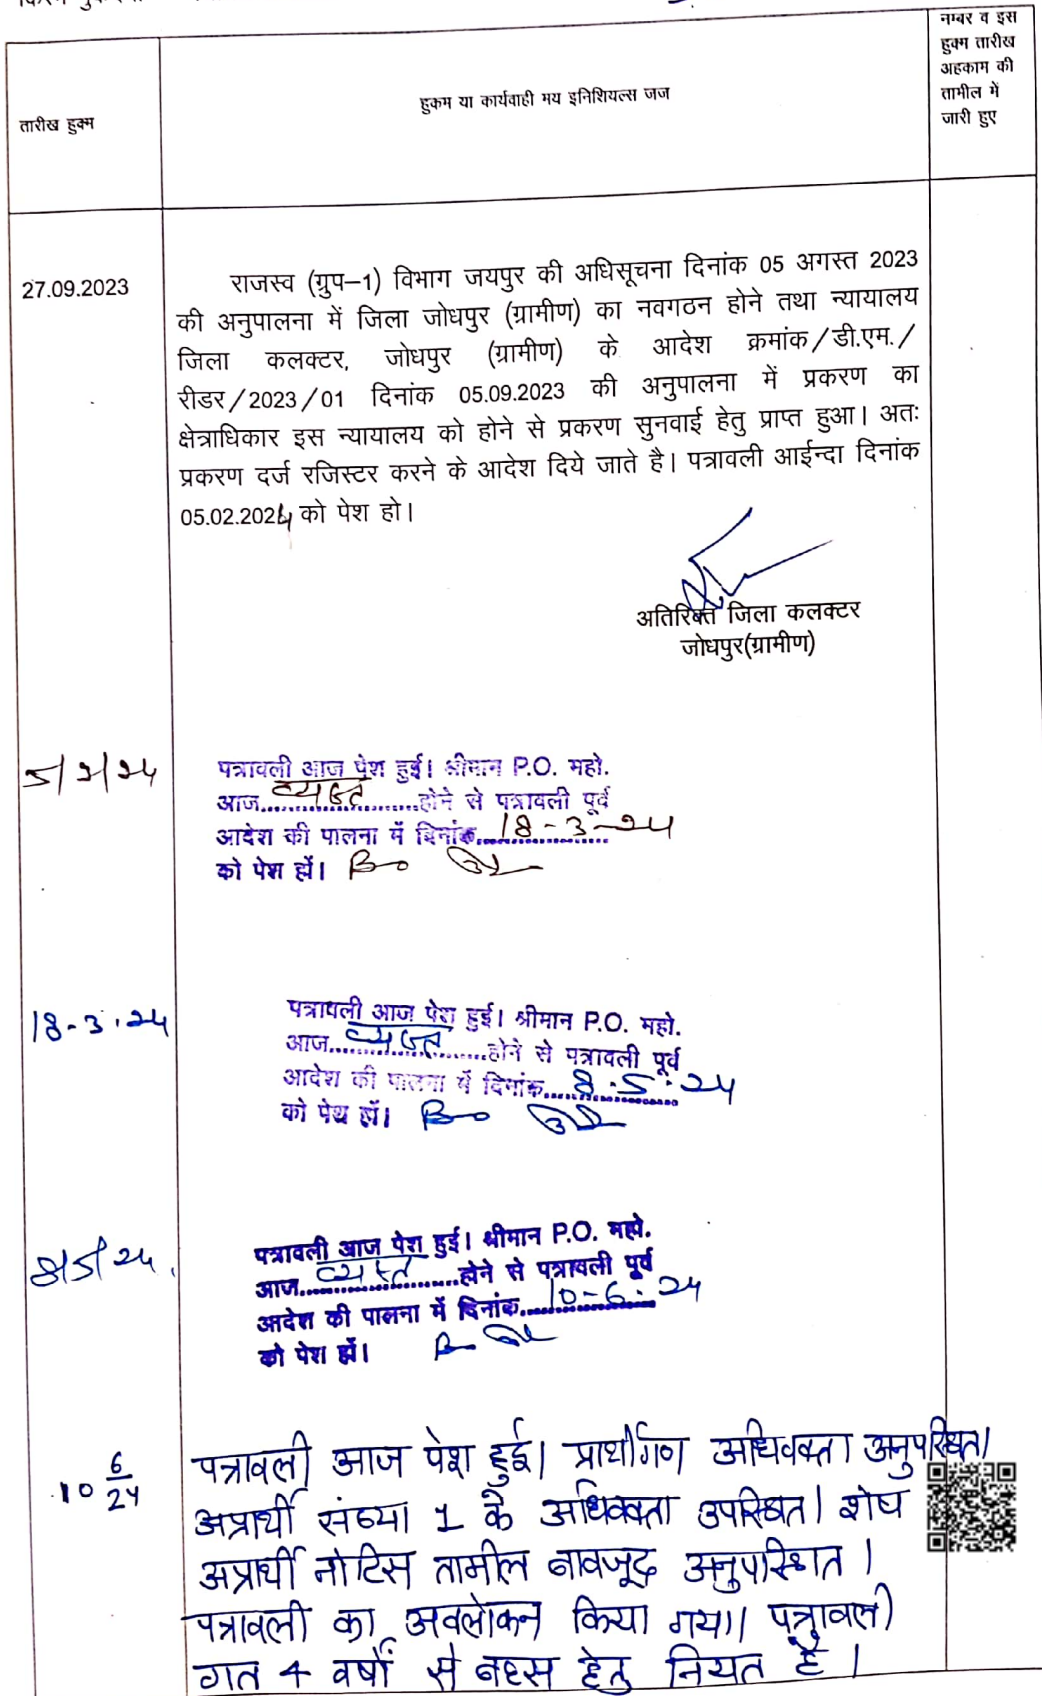 नम्बर व इस
हुक्म तारीख
अहकाम की
तामील में
जारी हुए
हुकम या कार्यवाही मय इनिशियल्स जज
तारीख हुक्म
27.09.2023
राजस्व (ग्रुप–1) विभाग जयपुर की अधिसूचना दिनांक 05 अगस्त 2023
की अनुपालना में जिला जोधपुर (ग्रामीण) का नवगठन होने तथा न्यायालय
जिला कलक्टर, जोधपुर (ग्रामीण) के आदेश क्रमांक/डी.एम./
रीडर/2023/01 दिनांक 05.09.2023 की अनुपालना में प्रकरण का
क्षेत्राधिकार इस न्यायालय को होने से प्रकरण सुनवाई हेतु प्राप्त हुआ। अतः
प्रकरण दर्ज रजिस्टर करने के आदेश दिये जाते है। पत्रावली आईन्दा दिनांक
05.02.2024 को पेश हो।
अतिरिक्त जिला कलक्टर
जोधपुर(ग्रामीण)
5/2/24
पत्रावली आज पेश हुई। श्रीमान P.O. महो.
आज व्यस्त होने से पत्रावली पूर्व
आदेश की पालना में दिनांक 18-3-24
को पेश हों।
18-3-24
पत्रावली आज पेश हुई। श्रीमान P.O. महो.
आज व्यस्त होने से पत्रावली पूर्व
आदेश की पालना में दिनांक 8.5.24
को पेश हों।
8/5/24
पत्रावली आज पेश हुई। श्रीमान P.O. महो.
आज व्यस्त होने से पत्रावली पूर्व
आदेश की पालना में दिनांक 10-6-24
को पेश हों।
10 6/24
पत्रावली आज पेश हुई। प्रार्थीगण अधिवक्ता अनुपस्थित।
अप्रार्थी संख्या 1 के अधिवक्ता उपस्थित। शेष
अप्रार्थी नोटिस तामील बावजूद अनुपस्थित।
पत्रावली का अवलोकन किया गया। पत्रावली
गत 4 वर्षों से बहस हेतु नियत है।